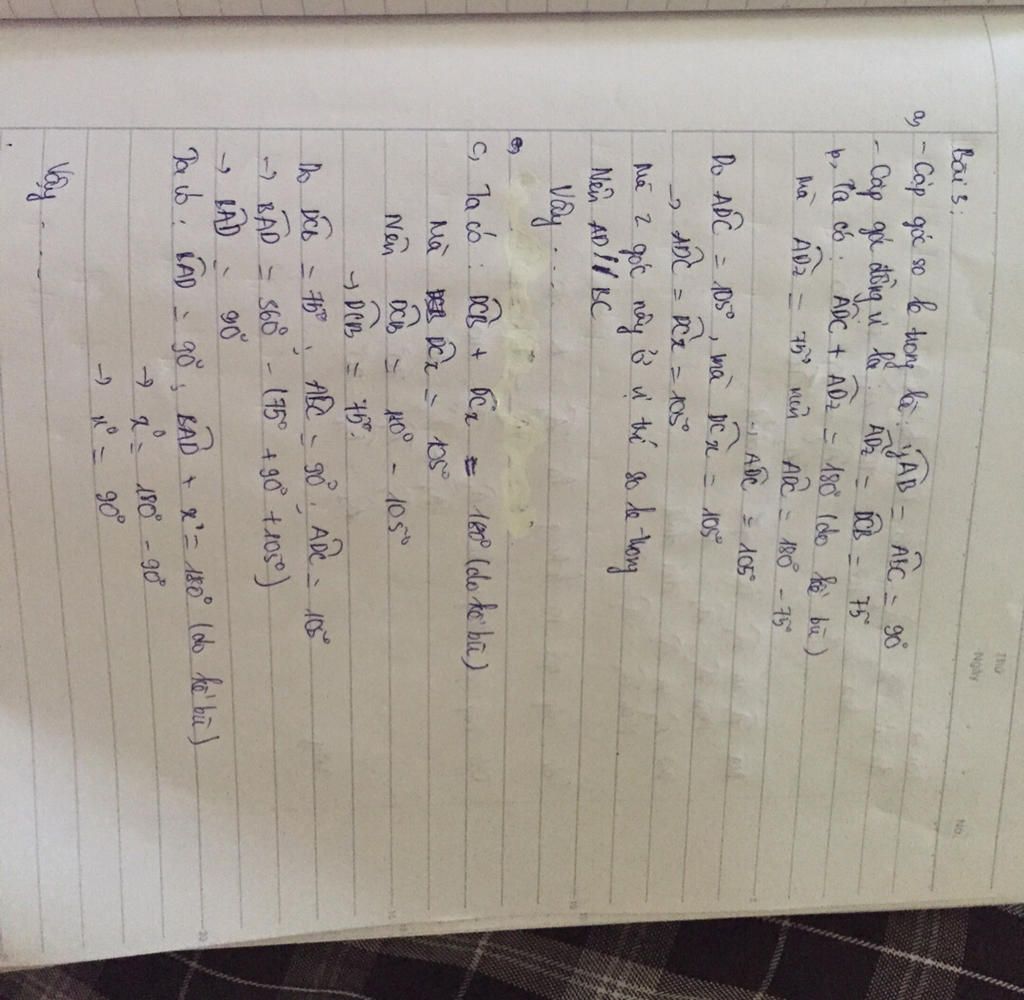 Thứ
Ngày
No.
Bài 3:
a, - Cặp góc so le trong là: yAB = ABC = 90°
- Cặp góc đồng vị là: ADz = DCB = 75°
b, Ta có: ADC + ADz = 180° (do kề bù)
mà ADz = 75° nên ADC = 180° - 75°
→ ADC = 105°
Do ADC = 105°, mà DCx = 105°
→ ADC = DCx = 105°
Mà 2 góc này ở vị trí so le trong
Nên AD // BC
Vậy...
c, Ta có: DCB + DCx = 180° (do kề bù)
Mà DCx = 105°
Nên DCB = 180° - 105°
→ DCB = 75°
Do DCB = 75°, ABC = 90°, ADC = 105°
→ BAD = 360° - (75° + 90° + 105°)
→ BAD = 90°
Ta có: BAD = 90°, BAD + x° = 180° (do kề bù)
→ x° = 180° - 90°
→ x° = 90°
Vậy ....